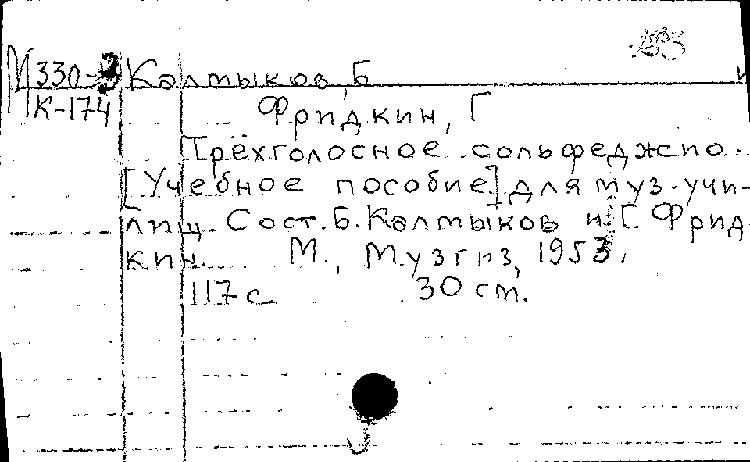 М330- Калмыков, Б и
К-174 Фридкин, Г
Трёхголосное сольфеджио.
[Учебное пособие] для муз. учи-
лищ. Сост. Б. Калмыков и Г. Фрид-
кин. М., Музгиз, 1953.
117 с 30 см.